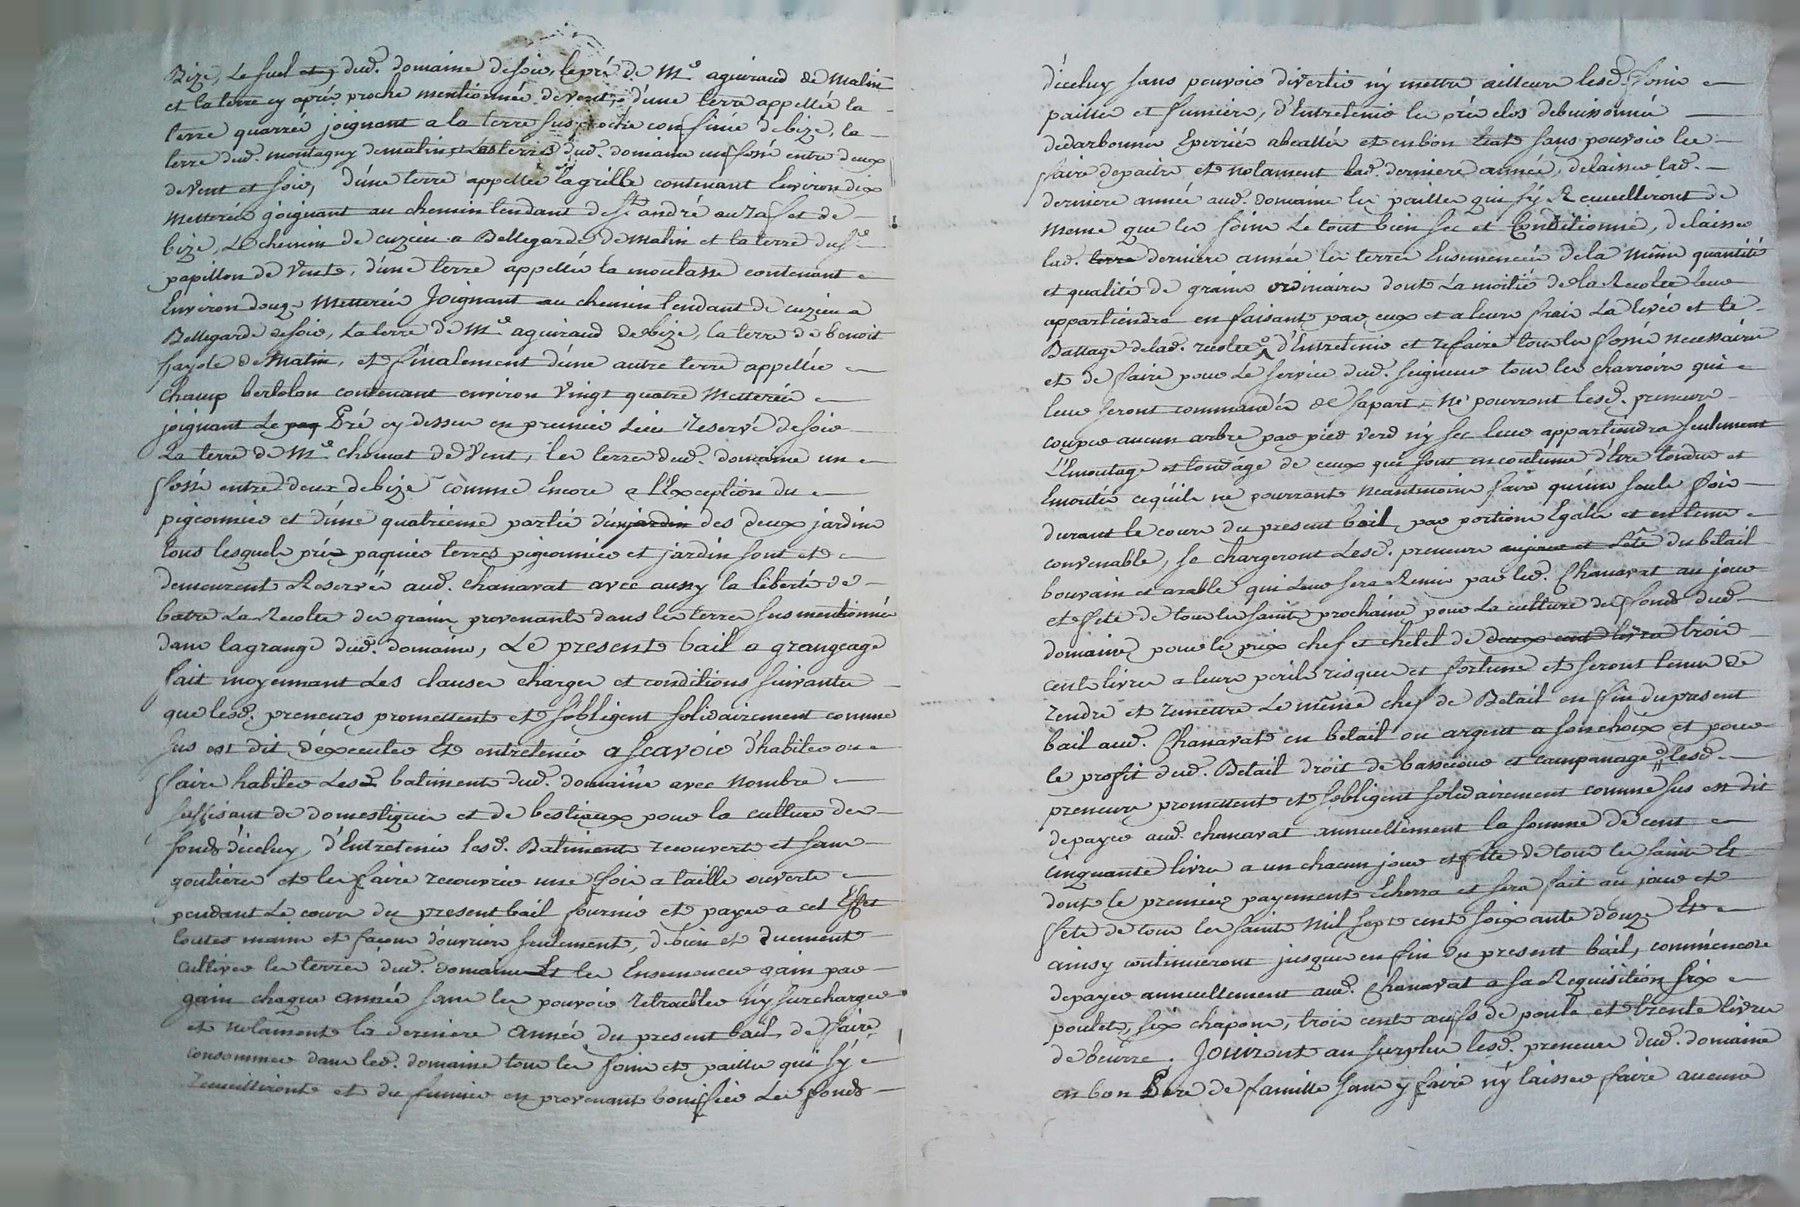 Bize, Le suel et, dud. domaine de soir, le pré de Me. aguiraud de Matin
et la terre cy après proche mentionnée de vent, d'une terre appellée la
terre quarrée joignant a la terre sus proche confinée de bize, la
terre dud. montagny de matin, Les terres dud. domaine un fossé entre deux
de vent et soir, d'une terre appellée la grille contenant Environ dix
Metterées joignant au chemin tendant de St. andré au et de
bize, Le chemin de cuzieu a Bellegarde de Matin et la terre du Sr.
papillon de Vente, d'une terre appellée la moulasse contenant
Environ douze Metterées Joignant au chemin tendant de cuzieu a
Bellegarde de soir, La terre de Me. aguiraud de bize, la terre de benoit
fayole de Matin, et finalement d'une autre terre appellée
Champ bertolon contenant environ Vingt quatre Metterées
joignant Le paq Pré cy dessus en premier Lieu Reservé de soir
La terre de Me. chomat de Vent, les terres dud. domaine un
fossé entre deux de bize comme Encore a l'Exception du
pigeonnier et d'une quatrieme partie d'un jardin des deux jardins
tous lesquels prés paquiers terres pigeonnier et jardin sont et
demeurent Reservés aud. chanavat avec aussy la liberté de
batre La Recolte des grains provenants dans les terres sus mentionnées
dans la grange dud. domaine, Le present bail a grangeage
fait moyennant Les clauses charges et conditions suivantes
que lesd. preneurs promettent et s'obligent solidairement comme
sus est dit d'executer Et entretenir a scavoir d'habiter ou
faire habiter Lesd. batiments dud. domaine avec Nombre
suffisant de domestiques et de bestiaux pour la culture des
fonds d'iceluy, d'Entretenir lesd. Batiments recouverts et sans
goutieres et les faire recouvrir une fois a taille ouverte
pendant Le cours du present bail fournir et payer a cet Effet
toutes mains et façons d'ouvriers seulement, de bien et duement
cultiver les terres dud. domaine Et les Ensemencer gain par
gain chaque année sans les pouvoir retroubler n'y surcharger
et notament la derniere année du present bail, de faire
consommer dans led. domaine tous les foins et pailles qui s'y
recueilliront et du fumier en provenant bonifier Les fonds
d'iceluy sans pouvoir divertir n'y mettre ailleurs lesd. foins
pailles et fumiers, d'Entretenir les prés clos de buissonnés
de darbonnés Eperriés abeallés et en bon etat sans pouvoir les
faire depaitre et notament lad. derniere année, delaisser lad.
derniere année aud. domaine les pailles qui s'y Recueilleront de
meme que les foins Le tout bien sec et Conditionné, delaisser
lad. terre derniere année les terres Ensemencées de la même quantité
et qualité de grains ordinaires dont La moitié de la Recolte leur
appartiendra en faisant par eux et a leurs frais La levée et le
Battage de lad. recolte d'Entretenir et refaire tous les fossés necessaires
et de faire pour Le service dud. seigneur tous les charroirs qui
leur seront commandés de sa part. Ne pourront lesd. preneurs
couper aucun arbre par pied verd n'y sec leur appartiendra seulement
L'Emoutage et tondage de ceux qui sont en coutume d'être tondus et
Emoutés ce qu'ils ne pourront Neantmoins faire qu'une seule fois
durant le cours du present bail par portions Egales et en tems
convenable, se chargeront Lesd. preneurs au jour et fête du betail
bouvain et arable qui Leur sera Remis par led. Chanavat au jour
et fête de tous les saints prochains pour La culture des fonds dud.
domaine pour le prix chef et chetel de deux cent livres trois
cent livres a leurs perils risques et fortune et seront tenus de
rendre et remettre Le même chef de Betail en fin du present
bail aud. Chanavat en betail ou argent a son choix et pour
le profit dud. Betail droit de basscour et campanage lesd.
preneurs promettent et s'obligent solidairement comme sus est dit
de payer aud. chanavat annuellement la somme de cent
cinquante livres a un chacun jour et fête de tous les saints Et
dont le premier payement Echerra et sera fait au jour et
fête de tous les saints Mil sept cent soixante douze Et
ainsy continueront jusques en fin du present bail, comm'encore
de payer annuellement aud. Chanavat a sa Requisition six
poulets, six chapons, trois cents œufs de poule et trente livres
de beurre. Jouiront au surplus lesd. preneurs dud. domaine
en bon Pere de famille sans y faire n'y laisser faire aucune